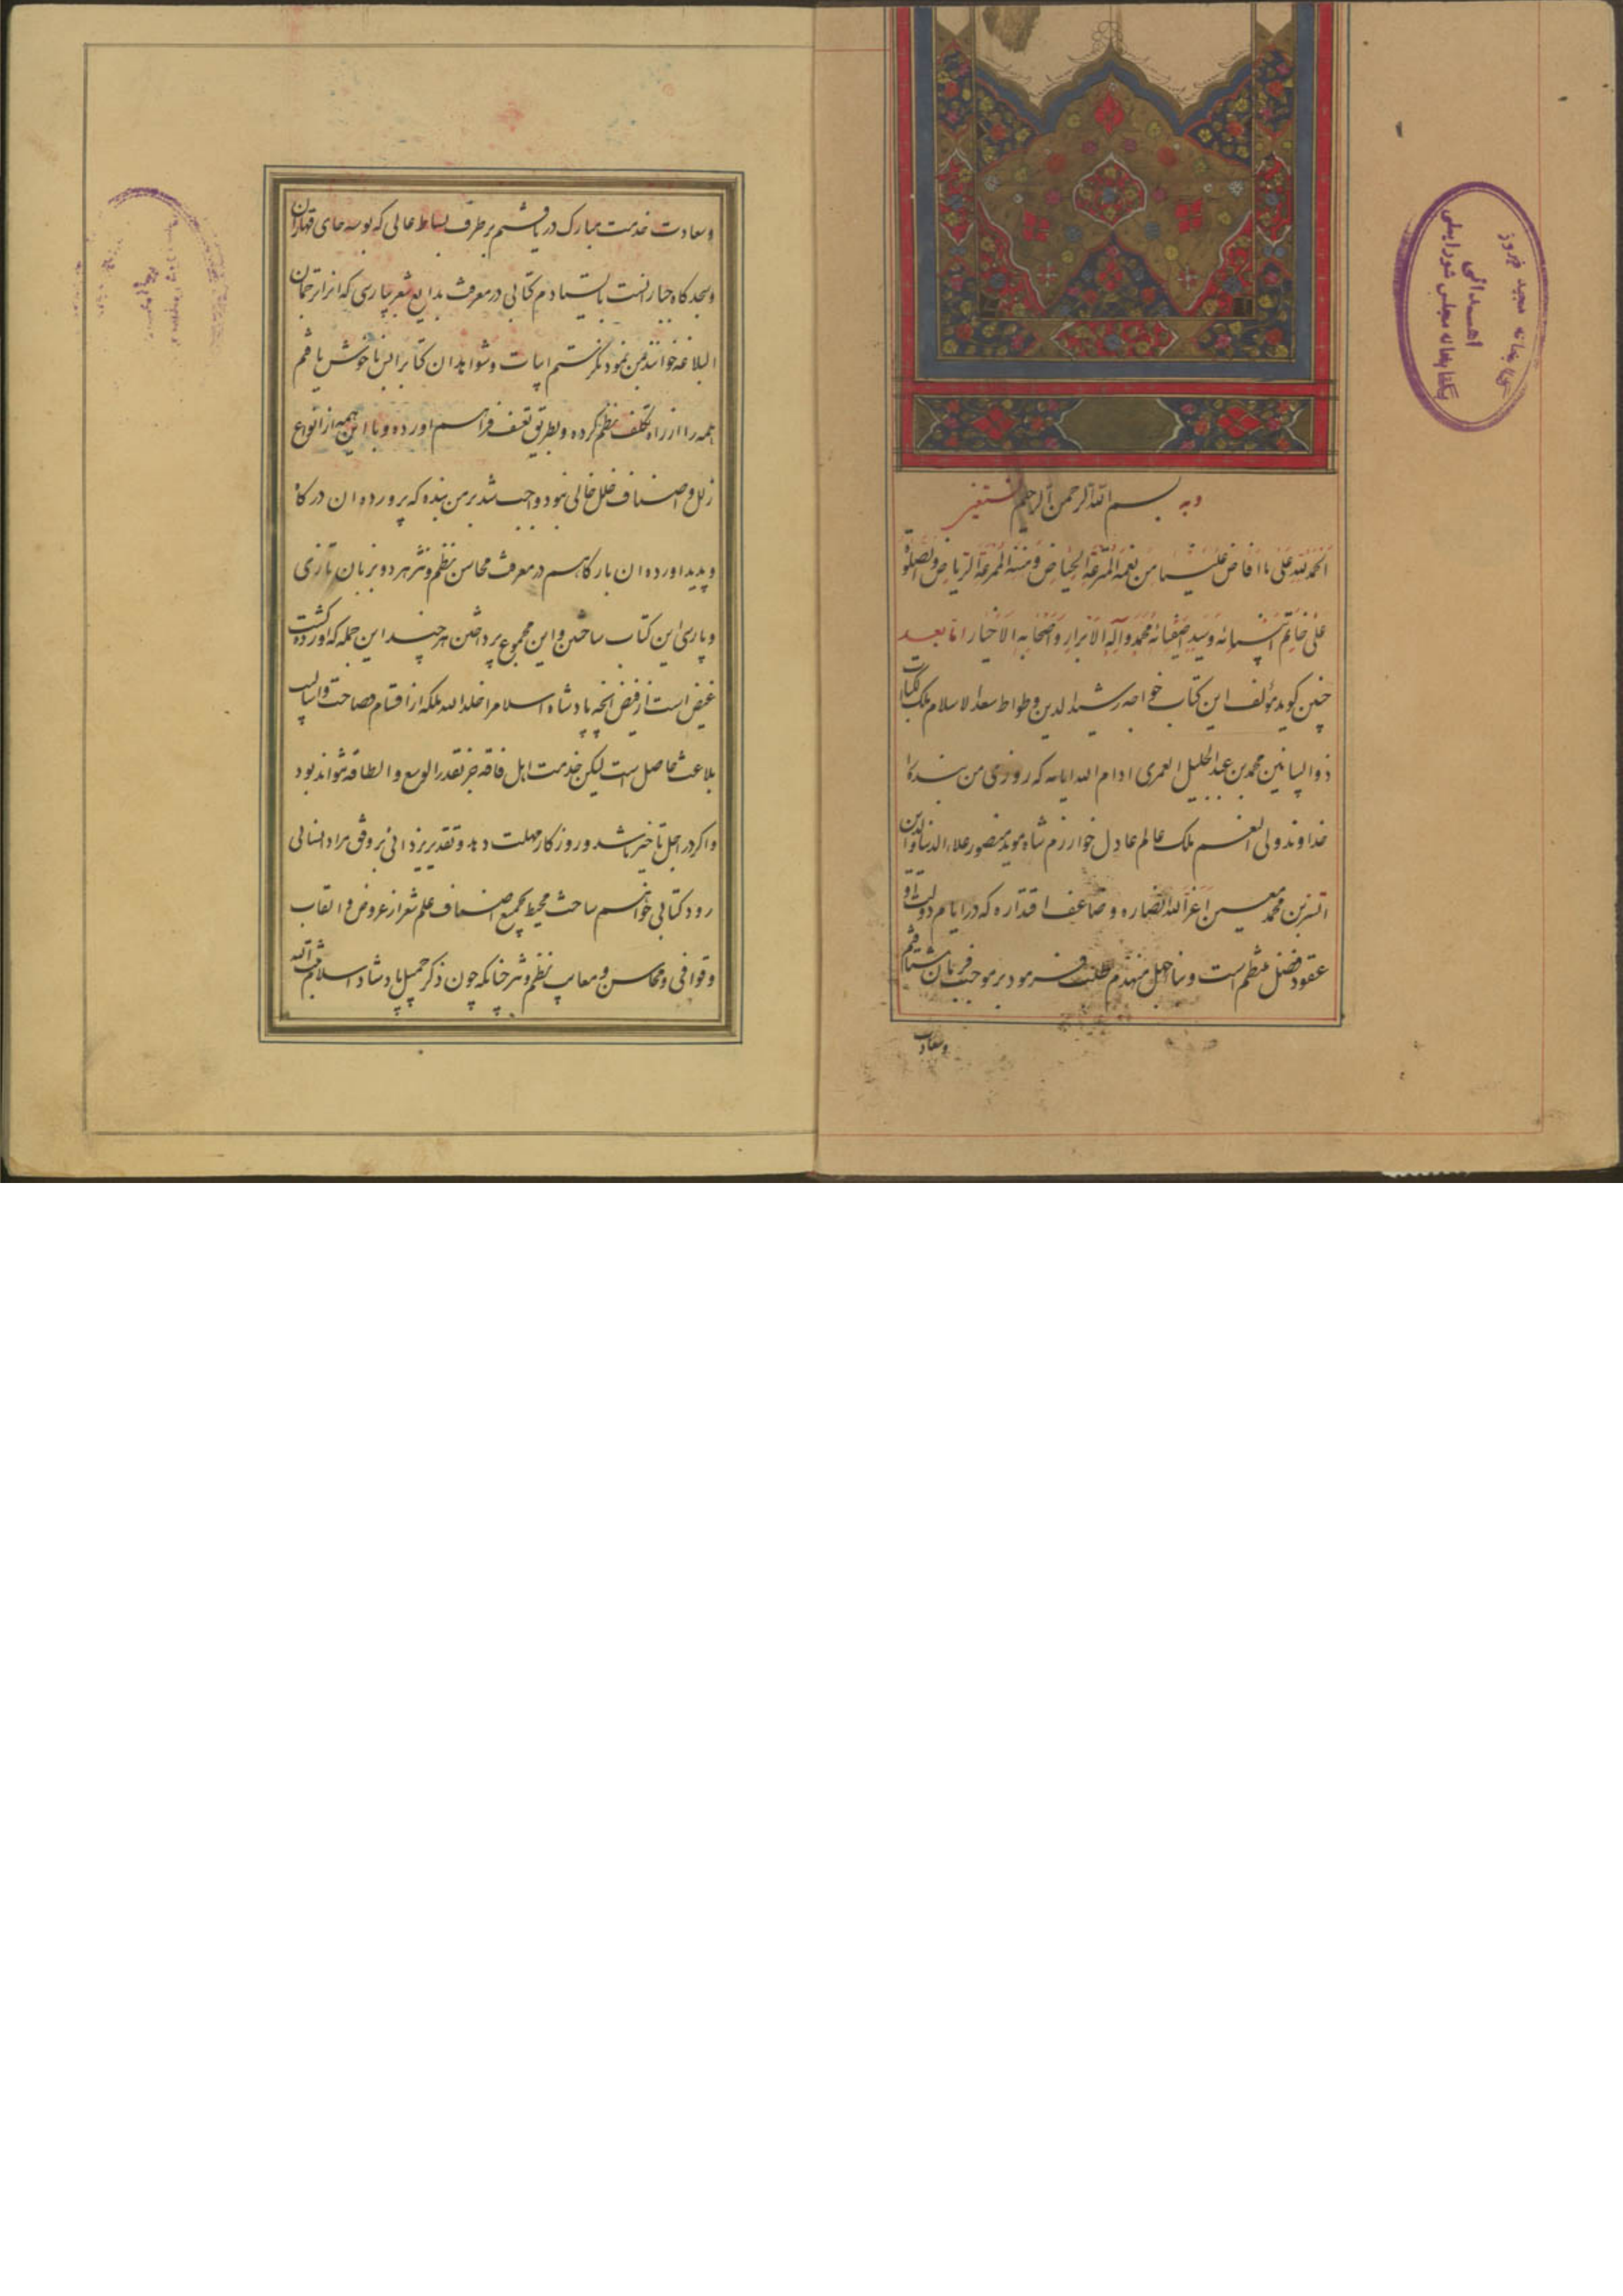 وبه بسم الله الرحمن الرحیم نستعین
اَلْحَمْدُ لِلّهِ عَلی ما اَفاضَ عَلَیْنا مِنْ نِعَمِهِ الْمُتْرَعَةِ الْحِیاضِ وَ مِنَنِهِ الْمُمْرَعَةِ الرِّیاضِ وَ الصَّلوةُ
عَلی خاتَمِ اَنْبِیائِهِ وَ سَیِّدِ اَصْفِیائِهِ مُحَمَّدٍ وَ آلِهِ الْاَبْرارِ وَ اَصْحابِهِ الْاَخْیارِ اما بعد
چنین کوید مؤلف این کتاب خواجه رشید الدین وطواط سعد الاسلام ملک الکتاب
ذو البیانین محمد بن عبد الجلیل العمری ادام الله ایامه که روزی من بنده را
خداوند ولی النعم ملک عالم عادل خوارزم شاه موید منصور علاء الدنیا والدین
اتسز بن محمد معین اعز الله انصاره و ضاعف اقتداره که در ایام دولت او
عقود فضل منتظم است و بناء جهل منهدم طلب فرمود بر موجب فرمان بشتافتم
وسعادت
وسعادت خدمت مبارک دریافتم بر طرف بساط عالی که بوسه جای قهاران
وسجده کاه جبارانست بایستادم کتابی در معرفت بدایع شعر پارسی که انرا ترجمان
البلاغه خوانند بمن نمود نکرستم ابیات و شواهد ان کتاب را بس ناخوش یافتم
همه را از راه تکلف نظم کرده و بطریق تعسف فراهم اورده و با این همه از انواع
زلل و اصناف خلل خالی نبود واجب شد بر من بنده که پرورده ان درکاه
و پدید اورده ان بارکاهم در معرفت محاسن نظم و نثر هر دو بزبان تازی
و پارسی این کتاب ساختن و این مجموع پرداختن هر چند این جمله که اورده کشت
غیض است از فیض انچه پادشاه اسلام را خلد الله ملکه از اقسام فصاحت و اسالیب
بلاغت حاصل است لیکن خدمت اهل فاقه جز بقدر الوسع و الطاقه نتواند بود
و اکر در اجل تاخیر باشد و روزکار مهلت دهد و تقدیر یزدانی بر وفق مراد انسانی
رود کتابی خواهم ساخت محیط بجمیع اصناف علم شعر از عروض و القاب
و قوافی و محاسن و معایب نظم و نثر چنانکه چون ذکر جمیل پادشاه اسلام ثبت الله
کتابخانه مجید فیروز
اهدائی
بکتابخانه مجلس شورایملی